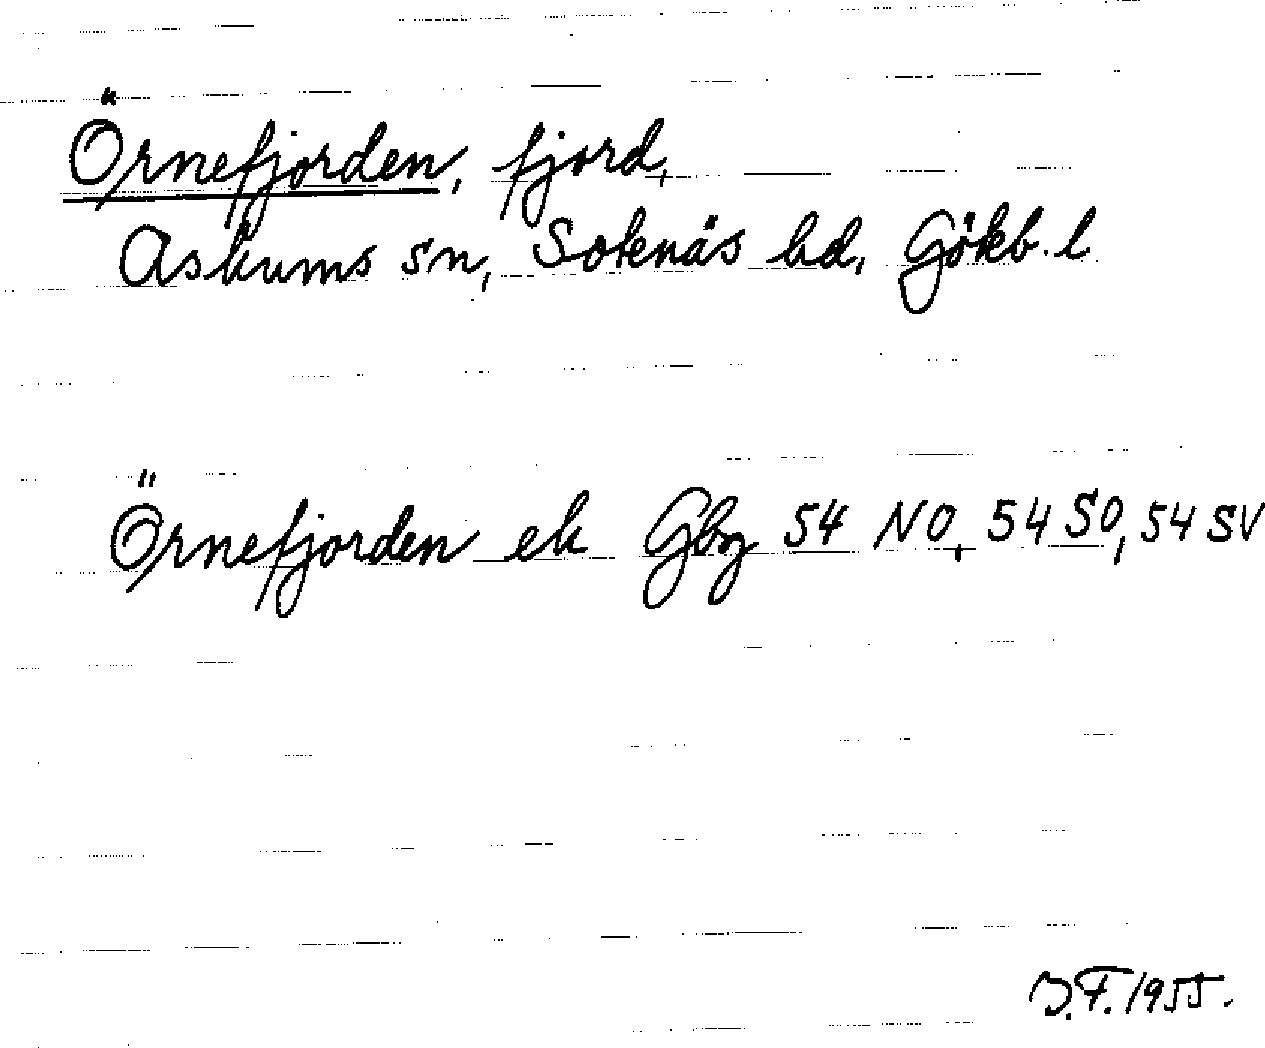 Örnefjorden, fjord,
Askums sn, Sotenäs hd, Gökb. l
Örnefjorden ek Gbg 54 NO, 54 SO, 54 SV
D.F. 1955.